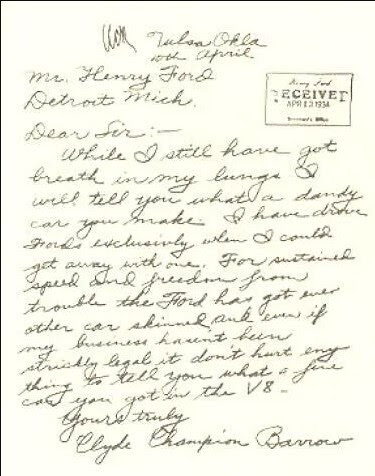 Tulsa Okla
10th April
Mr. Henry Ford
Detroit Mich.
Henry Ford
RECEIVED
APR 13 1934
Secretary's Office
Dear Sir:—
While I still have got
breath in my lungs I
will tell you what a dandy
car you make. I have drove
Fords exclusively when I could
get away with one. For sustained
speed and freedom from
trouble the Ford has got ever
other car skinned, and even if
my business hasnt been
strickly legal it don't hurt eny
thing to tell you what a fine
car you got in the V8 —
Yours truly
Clyde Champion Barrow